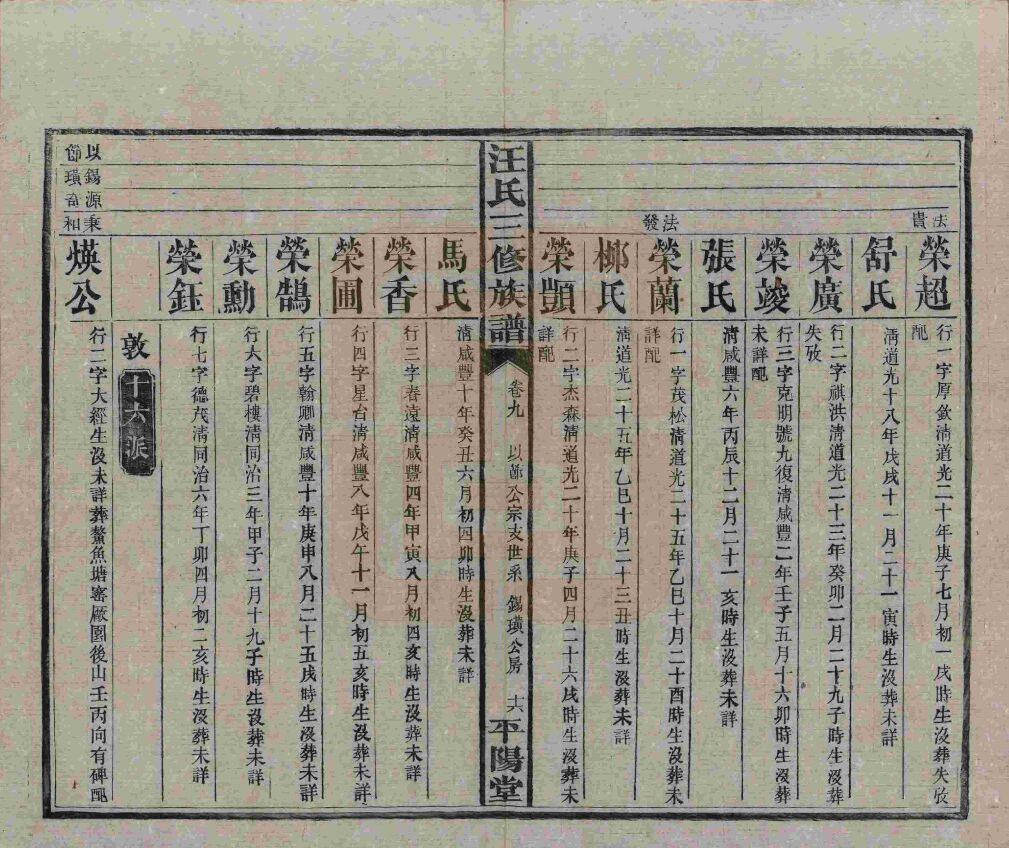 法貴
榮超
行一字厚欽淸道光二十年庚子七月初一戌時生沒葬失攷
配
舒氏
淸道光十八年戊戌十一月二十一寅時生沒葬未詳
榮廣
行二字祺洪淸道光二十三年癸卯二月二十九子時生沒葬
失攷
榮竣
行三字克明號九復淸咸豐二年壬子五月十六卯時生沒葬
未詳配
張氏
淸咸豐六年丙辰十二月二十一亥時生沒葬未詳
法發
榮蘭
行一字茂松淸道光二十五年乙巳十月二十酉時生沒葬未
詳配
鄉氏
淸道光二十五年乙巳十月二十三丑時生沒葬未詳
榮顗
行二字杰森淸道光二十年庚子四月二十六戌時生沒葬未
詳配
汪氏三修族譜
卷九
以節公宗支世系
錫璜公房
十六
平陽堂
馬氏
淸咸豐十年癸丑六月初四卯時生沒葬未詳
榮香
行三字春遠淸咸豐四年甲寅八月初四亥時生沒葬未詳
榮圃
行四字星台淸咸豐八年戊午十一月初五亥時生沒葬未詳
榮鵠
行五字翰卿淸咸豐十年庚申八月二十五戌時生沒葬未詳
榮勳
行六字碧樓淸同治三年甲子二月十九子時生沒葬未詳
榮鈺
行七字德茂淸同治六年丁卯四月初二亥時生沒葬未詳
敦
十六派
以節
錫璜
源奇
秉和
煐公
行二字大經生沒未詳葬鰲魚塘窰厰園後山壬丙向有碑配